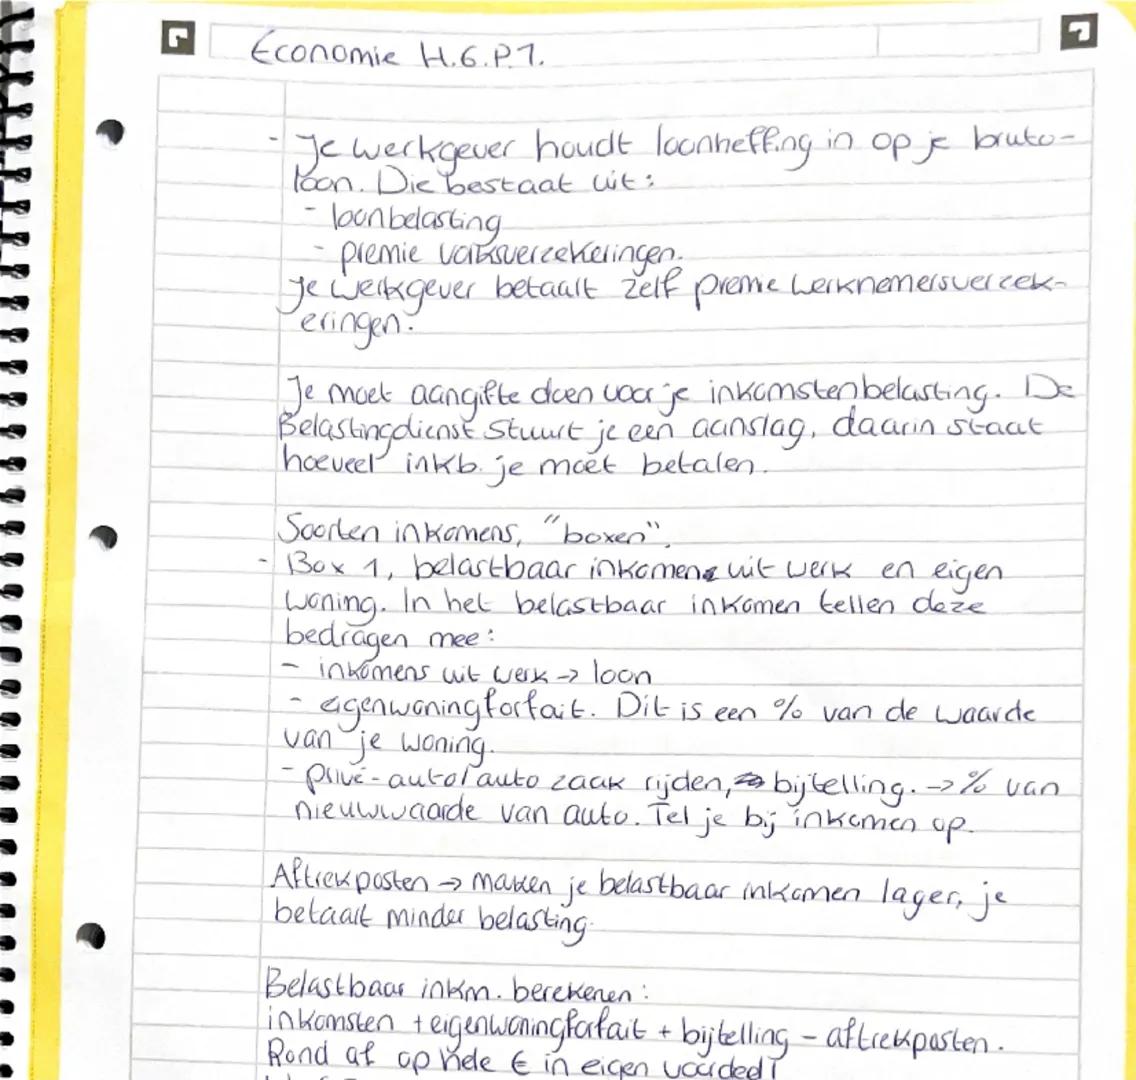 Economie H.6.P.1.
- Je werkgever houdt loonheffing in op je bruto-
loon. Die bestaat uit:
- loonbelasting
- premie volksverzekeringen.
Je werkgever betaalt zelf premie werknemersverzek-
eringen.
Je moet aangifte doen voor je inkomstenbelasting. De
Belastingdienst stuurt je een aanslag, daarin staat
hoeveel inkb. je moet betalen.
Soorten inkomens, "boxen".
- Box 1, belastbaar inkomen uit werk en eigen
woning. In het belastbaar inkomen tellen deze
bedragen mee:
- inkomens uit werk -> loon
- eigenwoningforfait. Dit is een % van de waarde
van je woning.
- privé-auto/auto zaak rijden, bijtelling. -> % van
nieuwwaarde van auto. Tel je bij inkomen op.
Aftrekposten -> maken je belastbaar inkomen lager, je
betaalt minder belasting.
Belastbaar inkm. berekenen:
inkomsten + eigenwoningforfait + bijtelling - aftrekposten.
Rond af op hele € in eigen voordeel!